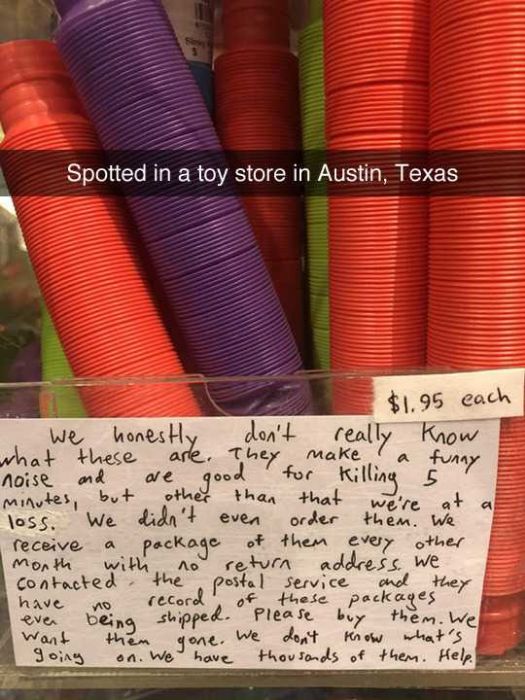 Spotted in a toy store in Austin, Texas
$1.95 each
We honestly don't really know
what these are. They make a funny
noise and are good for killing 5
minutes, but other than that we're at a
loss. We didn't even order them. We
receive a package of them every other
month with no return address. We
contacted the postal service and they
have no record of these packages
ever being shipped. Please buy them. We
want them gone. We don't know what's
going on. We have thousands of them. Help.